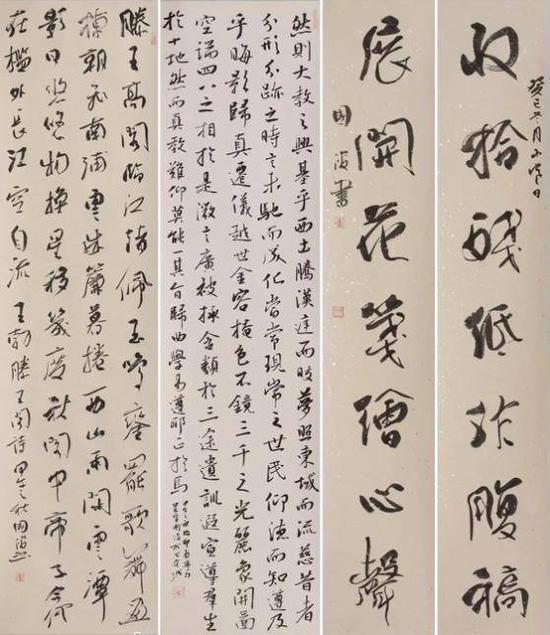 癸巳冬月
收拾殘紙作腹稿
展開花箋繪心聲
然則大教之興基乎西土騰漢庭而皎夢照東域而流慈昔者
分形分跡之時言未馳而成化當常現常之世民仰德而知遵及
乎晦影歸真遷儀越世金容掩色不鏡三千之光麗象開圖
空端四八之相於是微言廣被拯含類於三途遺訓遐宣導群生
於十地然而真教難仰莫能一其旨歸曲學易遵邪正於焉
滕王高閣臨江渚佩玉鳴鸞罷歌舞畫
棟朝飛南浦雲珠簾暮捲西山雨閑雲潭
影日悠悠物換星移幾度秋閣中帝子今何
在檻外長江空自流 王勃滕王閣詩 甲午秋